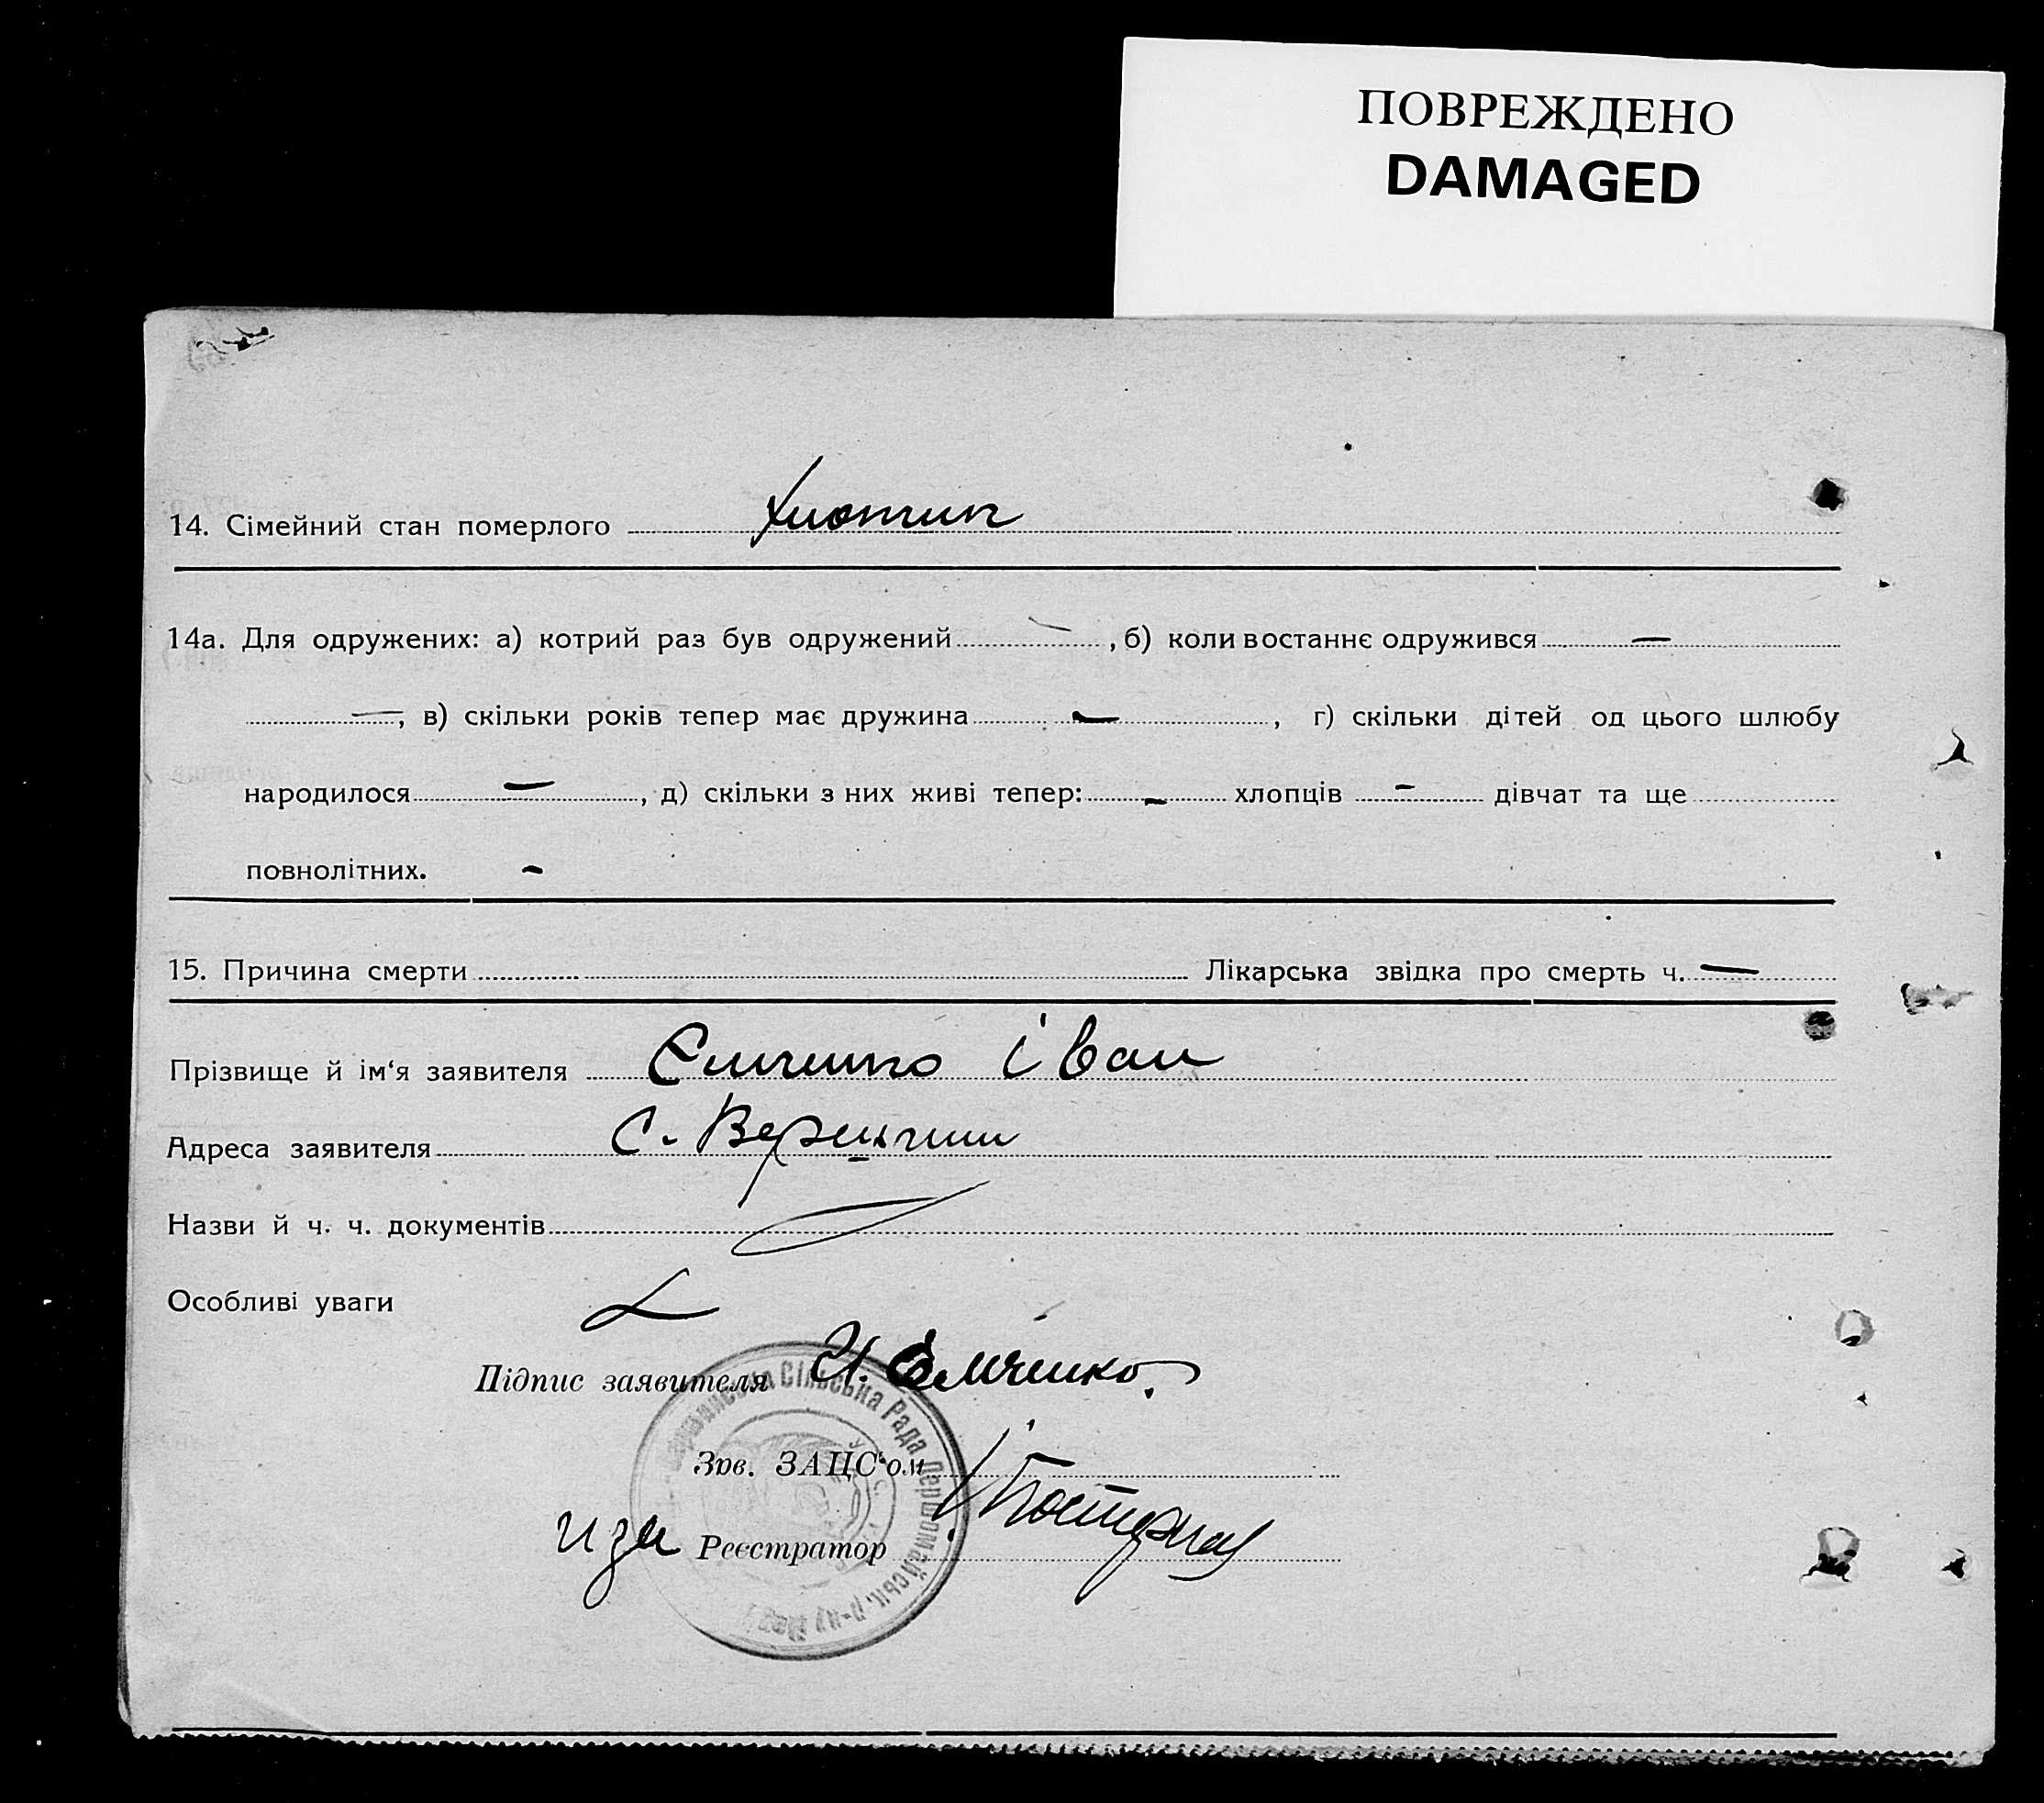 ПОВРЕЖДЕНО
DAMAGED
14. Сімейний стан померлого хлопчик
14а. Для одружених: а) котрий раз був одружений — , б) коли востаннє одружився —
—, в) скільки років тепер має дружина — , г) скільки дітей од цього шлюбу
народилося — , д) скільки з них живі тепер: — хлопців — дівчат та ще
повнолітних. -
15. Причина смерти Лікарська звідка про смерть ч. —
Прізвище й ім'я заявителя Ємченко Іван
Адреса заявителя с.
Назви й ч. ч. документів
Особливі уваги
Підпис заявителя И. Ємченко.
Зав. ЗАЦС'ом
Реєстратор
Сільська Рада Першомайськ. р-ну